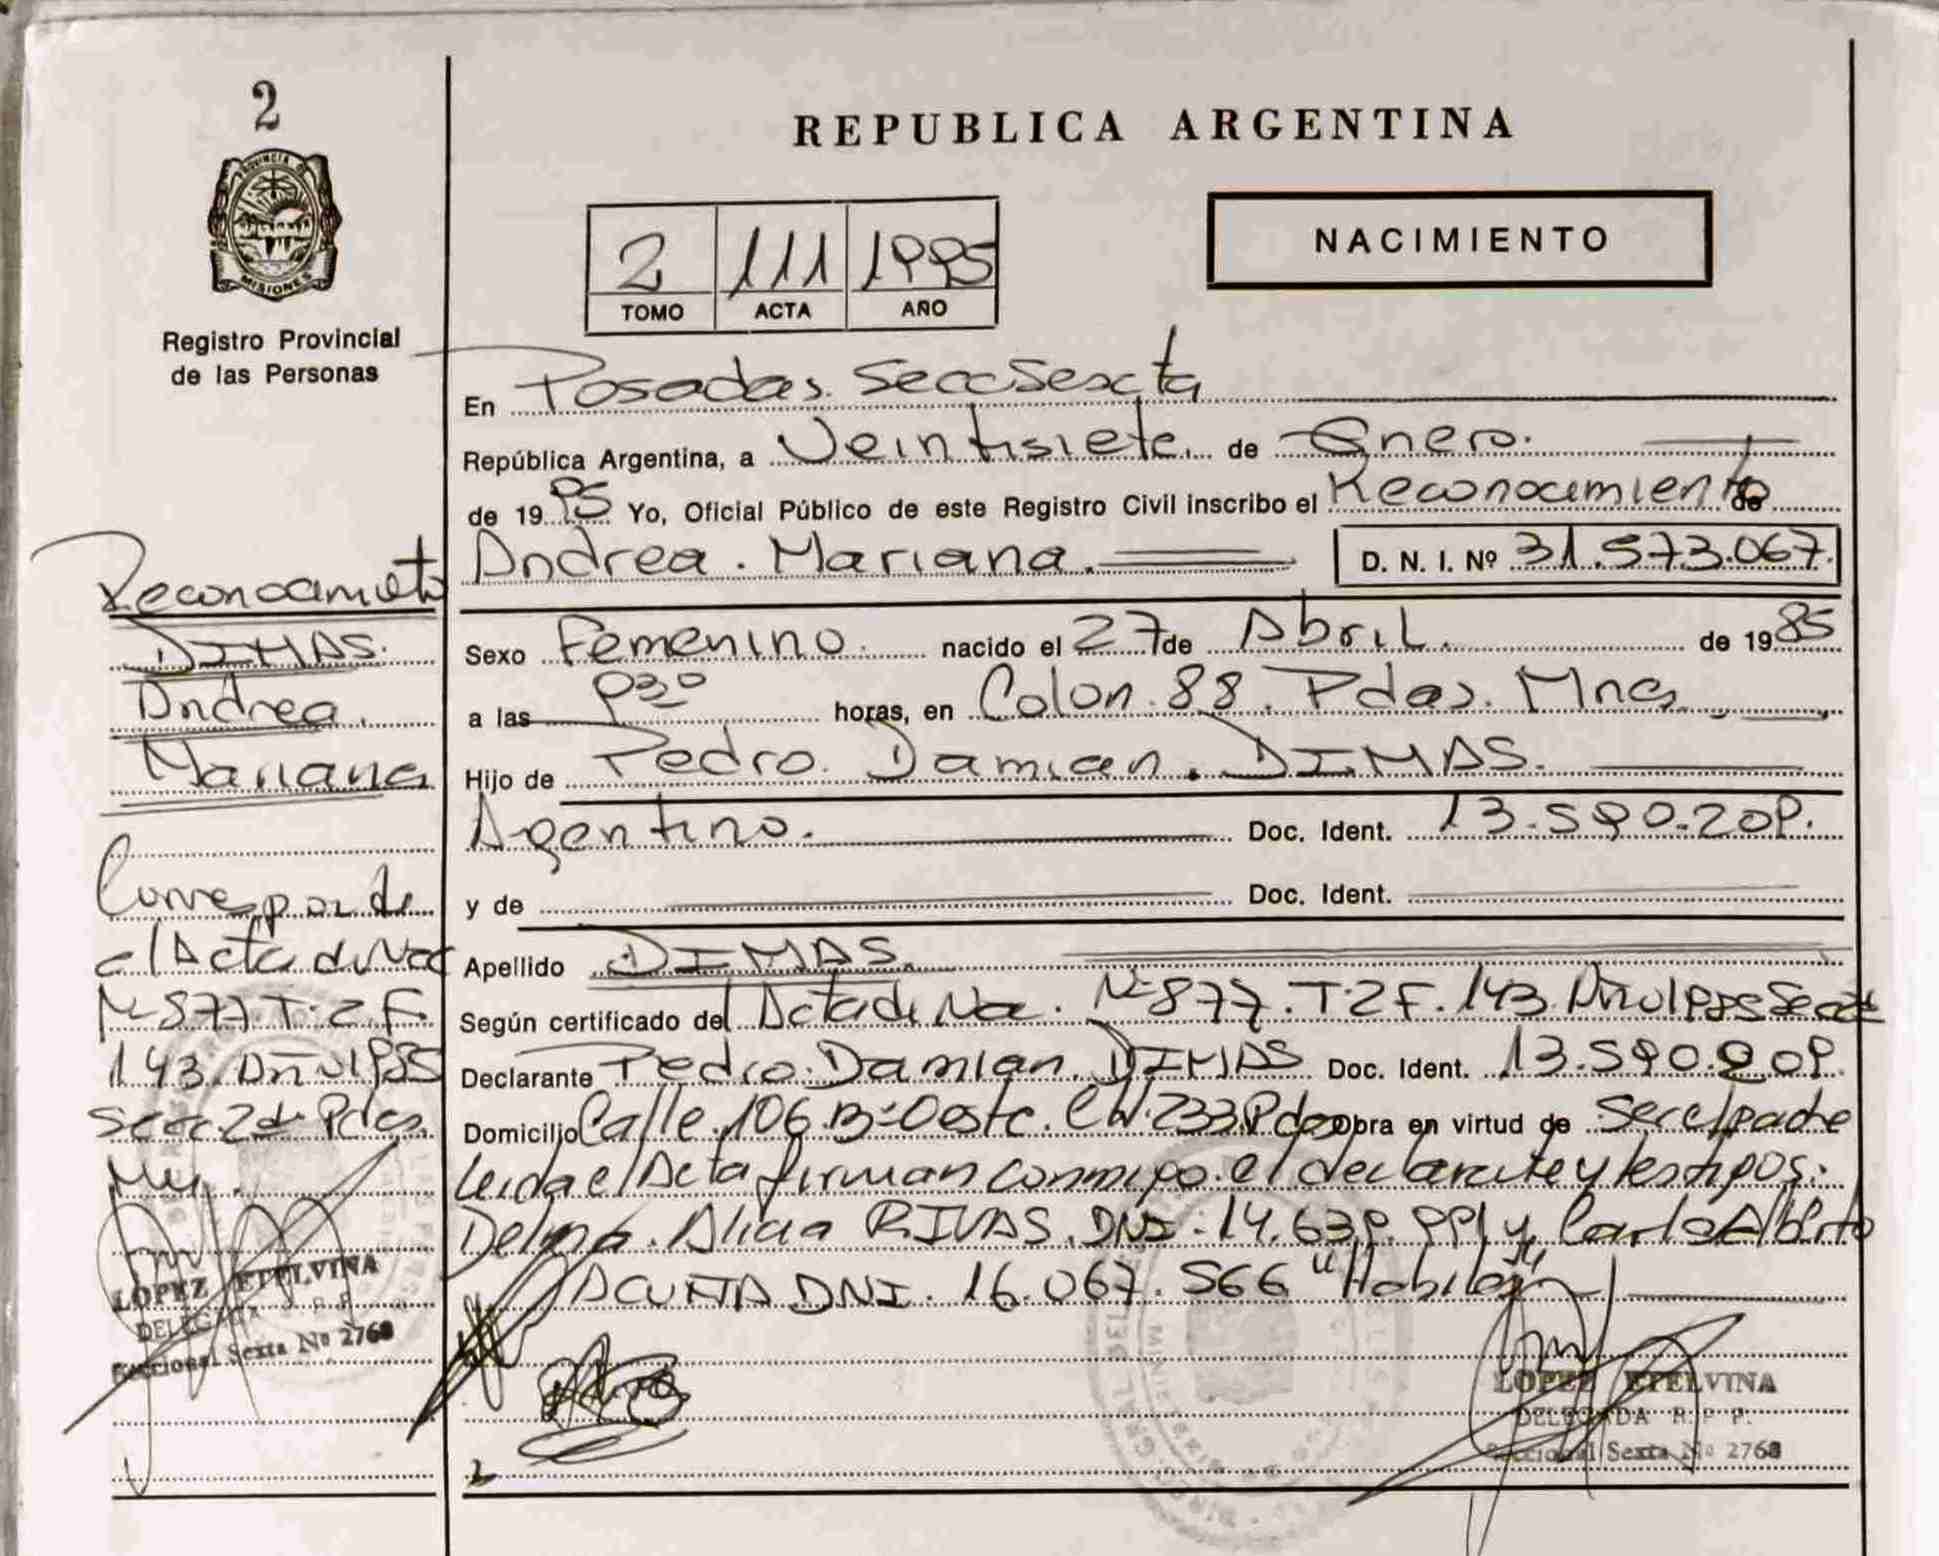 2
PROVINCIA DE
MISIONES
Registro Provincial
de las Personas
Reconocimieto
DIMAS.
Andrea.
Mariana
Corresponde
el Acta de Nac
Nº 877. T. 2 F.
143. Año 1985
Secc 2da Pdas.
LOPEZ ETELVINA
DELEGADA R.P.P.
Seccional Sexta Nº 2768
REPUBLICA ARGENTINA
NACIMIENTO
2 111 1995
TOMO ACTA AÑO
En Posadas. Secc Sexta
República Argentina, a Veintisiete. de Enero.
de 19 95 Yo, Oficial Público de este Registro Civil inscribo el Reconocimiento de
Andrea. Mariana. D. N. I. Nº 31.573.067.
Sexo Femenino. nacido el 27 de Abril. de 19 85
a las 930 horas, en Colon. 88. Pdas. Mnes
Hijo de Pedro. Damian. DIMAS.
Agentino. Doc. Ident. 13.590.209.
y de Doc. Ident.
Apellido DIMAS.
Según certificado del Acta de Nac. Nº 877. T. 2 F. 143. Año 1985 Secc 2da
Declarante Pedro. Damian. DIMAS Doc. Ident. 13.590.209.
Domicilio Calle. 106. Bº Oeste. CH. 233. Pdas Obra en virtud de Ser el padre
Leida el Acta firman conmigo. el declarate y testigos:
Delma. Alicia RIVAS. DNI. 14.639.991 y Carlos Alberto
ACUÑA DNI. 16.067.566 "Habiles"
LOPEZ ETELVINA
DELEGADA R.P.P.
Seccional Sexta Nº 2768